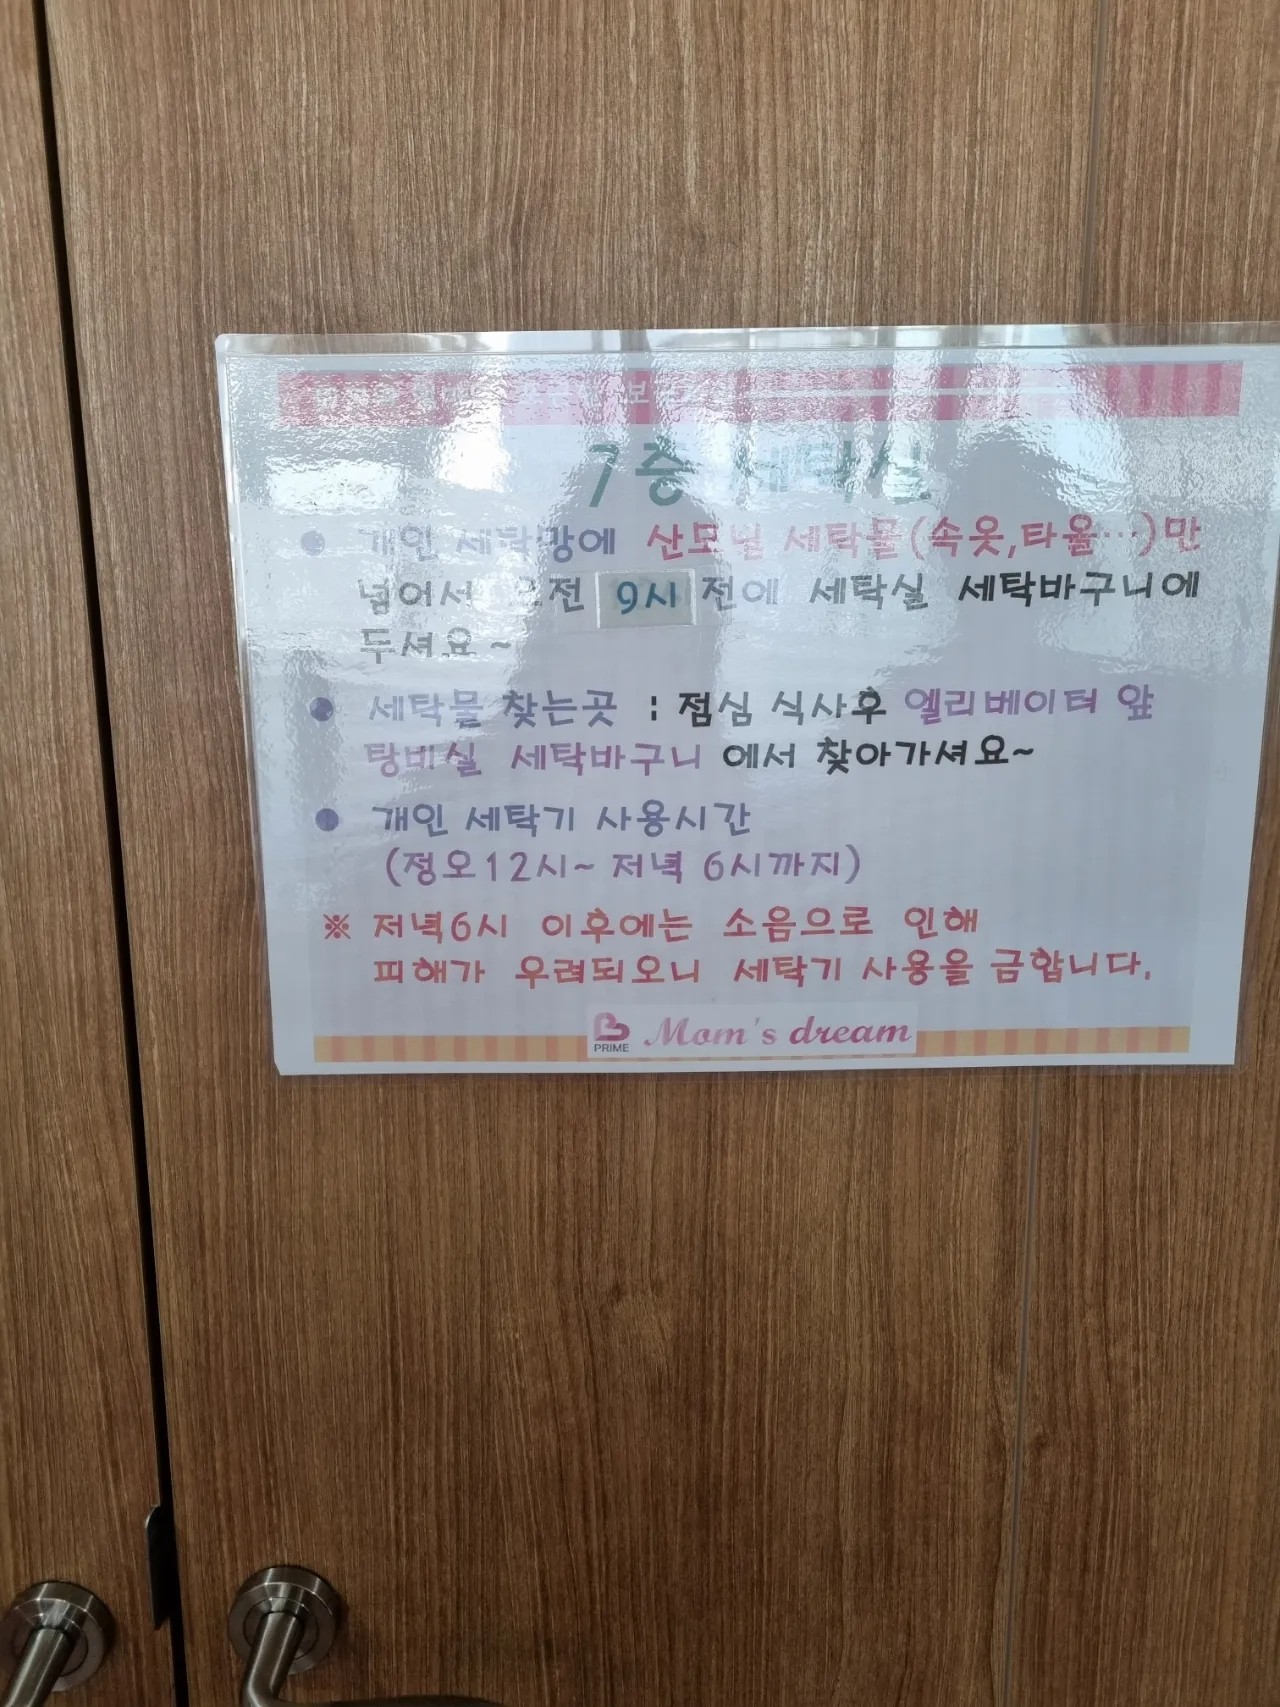 7층 세탁실
● 개인 세탁망에 산모님 세탁물(속옷,타올…)만
넣어서 오전 9시 전에 세탁실 세탁바구니에
두셔요~
● 세탁물 찾는곳 : 점심 식사후 엘리베이터 앞
탕비실 세탁바구니 에서 찾아가셔요~
● 개인 세탁기 사용시간
(정오12시~ 저녁 6시까지)
※ 저녁6시 이후에는 소음으로 인해
피해가 우려되오니 세탁기 사용을 금합니다.
PRIME Mom's dream